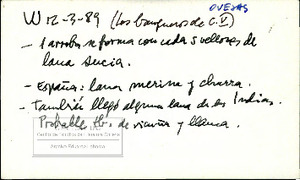 OVEJAS
W 12-3-89 (Los banqueros de C.V)
- 1 arroba se forma con cada 5 vellones de
lana sucia.
- España: lana merina y churra.
- También llegó alguna lana de las Indias.
Probable tb. de vicuña y llama.